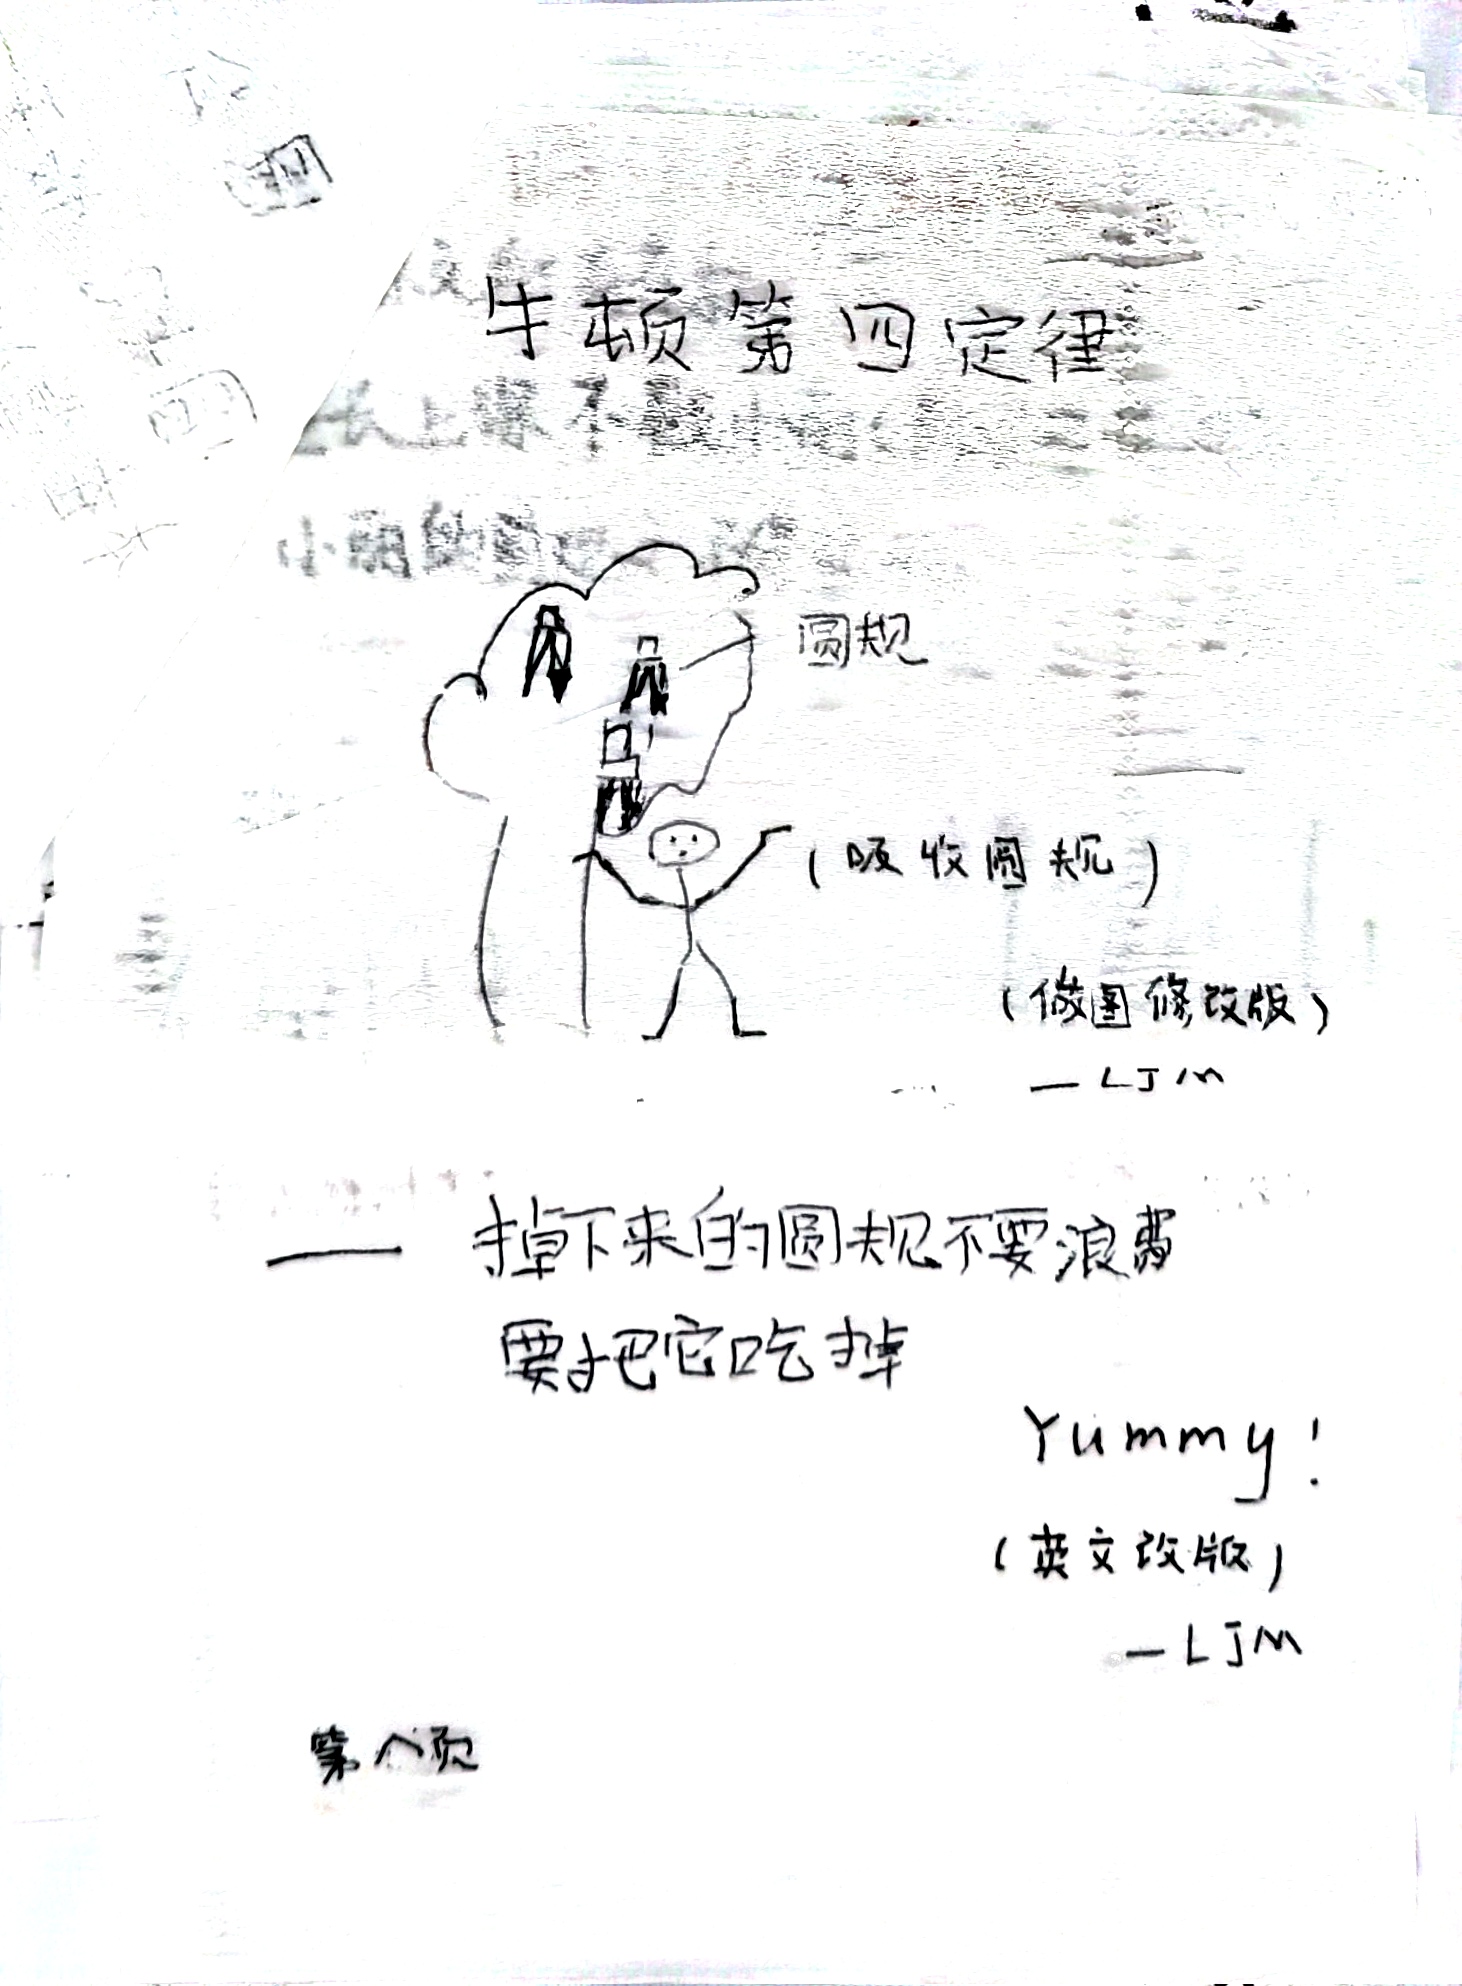 牛顿第四定律
圆规
(吸收圆规)
(做图修改版)
—LJM
—— 掉下来的圆规不要浪费
要把它吃掉
Yummy!
(英文改版)
—LJM
第八页